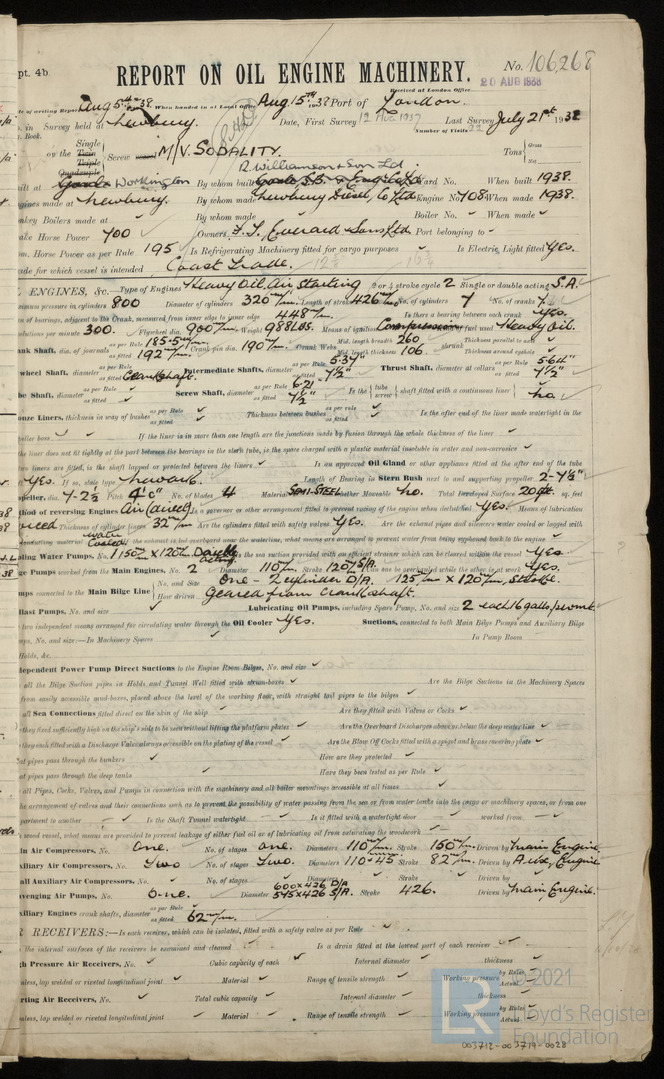 pt. 4b
No. 106,268
REPORT ON OIL ENGINE MACHINERY.
20 AUG 1938
Received at London Office
Date of writing Report Aug 5th 1938 When handed in at Local Office Aug. 15TH 1938 Port of London.
in Survey held at Newbury. Date, First Survey 12 Aug 1937 Last Survey July 21st 1938
Book. Number of Visits 22
Single
on the Twin Screw M/V. SODALITY. Tons Gross
Triple Net
Quadruple R. Williamson & Son Ltd
built at Goole Workington By whom built Yard No. When built 1938.
Engines made at Newbury. By whom made Newbury Diesel Co Ltd Engine No 708 When made 1938.
Donkey Boilers made at By whom made Boiler No. When made
Brake Horse Power 700 Owners F. T. Everard & Sons Ltd Port belonging to
Nom. Horse Power as per Rule 195 Is Refrigerating Machinery fitted for cargo purposes Is Electric Light fitted Yes.
Trade for which vessel is intended Coast Trade.
ENGINES, &c. Type of Engines Heavy Oil Air Starting 2 or 4 stroke cycle 2 Single or double acting S.A.
Maximum pressure in cylinders 800 Diameter of cylinders 320 m/m. Length of stroke 426 m/m No. of cylinders 7 No. of cranks 7
of bearings, adjacent to the Crank, measured from inner edge to inner edge 448 m/m. Is there a bearing between each crank Yes.
Revolutions per minute 300. Flywheel dia. 900 m/m. Weight 988 LBS. Means of ignition Compression Kind of fuel used Heavy Oil.
Crank Shaft, dia. of journals as per Rule 185.5 m/m as fitted 192 m/m. Crank pin dia. 190 m/m. Crank Webs Mid. length breadth 260 Mid. length thickness 106 shrunk Thickness parallel to axis Thickness around eyehole
Flywheel Shaft, as per Rule as fitted Crankshaft. Intermediate Shafts, diameter as per Rule 5.37" as fitted 7½" Thrust Shaft, diameter at collars as per Rule 5.64" as fitted 7½"
Tube Shaft, as per Rule as fitted Screw Shaft, diameter as per Rule 6.21 as fitted 7½" Is the tube screw shaft fitted with a continuous liner no.
Bronze Liners, thickness in way of bushes as per Rule as fitted Thickness between bushes as per Rule as fitted Is the after end of the liner made watertight in the
propeller boss If the liner is in more than one length are the junctions made by fusion through the whole thickness of the liner
the liner does not fit tightly at the part between the bearings in the stern tube, is the space charged with a plastic material insoluble in water and non-corrosive
two liners are fitted, is the shaft lapped or protected between the liners Is an approved Oil Gland or other appliance fitted at the after end of the tube
Yes. If so, state type Newark. Length of Bearing in Stern Bush next to and supporting propeller 2-7½"
Propeller, dia. 7-2½ Pitch 4'0" No. of blades 4 Material SEMI-STEEL whether Moveable no. Total Developed Surface 20 sq. feet
Method of reversing Engines Air (direct) Is a governor or other arrangement fitted to prevent racing of the engine when declutched Yes. Means of lubrication
forced Thickness of cylinder liners 32 m/m Are the cylinders fitted with safety valves Yes. Are the exhaust pipes and silencers water cooled or lagged with
conducting material water cooled If the exhaust is led overboard near the waterline, what means are arranged to prevent water from being syphoned back to the engine
Cooling Water Pumps, No. 1 150 m/m x 120 m/m Double acting Is the sea suction provided with an efficient strainer which can be cleared within the vessel Yes.
Bilge Pumps worked from the Main Engines, No. 2 Diameter 110 m/m Stroke 120 S/A. Can one be overhauled while the other is at work Yes.
Pumps connected to the Main Bilge Line No. and Size One - 2 cylinder D/A. 125 m/m x 120 m/m, stroke.
How driven Geared from Crankshaft.
Ballast Pumps, No. and size Lubricating Oil Pumps, including Spare Pump, No. and size 2 each 16 galls/
two independent means arranged for circulating water through the Oil Cooler Yes. Suctions, connected to both Main Bilge Pumps and Auxiliary Bilge
Pumps, No. and size:—In Machinery Spaces In Pump Room
Holds, &c.
Independent Power Pump Direct Suctions to the Engine Room Bilges, No. and size
all the Bilge Suction pipes in Holds and Tunnel Well fitted with strum-boxes Are the Bilge Suctions in the Machinery Spaces
from easily accessible mud-boxes, placed above the level of the working floor, with straight tail pipes to the bilges
all Sea Connections fitted direct on the skin of the ship Are they fitted with Valves or Cocks
they fixed sufficiently high on the ship's side to be seen without lifting the platform plates Are the Overboard Discharges above or below the deep water line
they each fitted with a Discharge Valve always accessible on the plating of the vessel Are the Blow Off Cocks fitted with a spigot and brass covering plate
What pipes pass through the bunkers How are they protected
What pipes pass through the deep tanks Have they been tested as per Rule
all Pipes, Cocks, Valves, and Pumps in connection with the machinery and all boiler mountings accessible at all times
the arrangement of valves and their connections such as to prevent the possibility of water passing from the sea or from water tanks into the cargo or machinery spaces, or from one
compartment to another Is the Shaft Tunnel watertight Is it fitted with a watertight door worked from
a wood vessel, what means are provided to prevent leakage of either fuel oil or of lubricating oil from saturating the woodwork
Main Air Compressors, No. One. No. of stages One. Diameters 110 m/m. Stroke 150 m/m. Driven by Main Engine.
Auxiliary Air Compressors, No. Two No. of stages Two. Diameters 110 x 45 Stroke 82 m/m. Driven by Aux, Engine
Small Auxiliary Air Compressors, No. No. of stages Diameters Stroke Driven by
Scavenging Air Pumps, No. One. Diameter 600 x 426 D/A 545 x 426 S/A. Stroke 426. Driven by Main Engine.
Auxiliary Engines crank shafts, diameter as per Rule as fitted 62 m/m.
AIR RECEIVERS:—Is each receiver, which can be isolated, fitted with a safety valve as per Rule
the internal surfaces of the receivers be examined and cleaned Is a drain fitted at the lowest part of each receiver
High Pressure Air Receivers, No. Cubic capacity of each Internal diameter thickness
Seamless, lap welded or riveted longitudinal joint Material Range of tensile strength Working pressure by Rules Actual
Starting Air Receivers, No. Total cubic capacity Internal diameter thickness
Seamless, lap welded or riveted longitudinal joint Material Range of tensile strength Working pressure by Rules Actual
© 2021
Lloyd's Register
Foundation
LR
003712-003719-0028